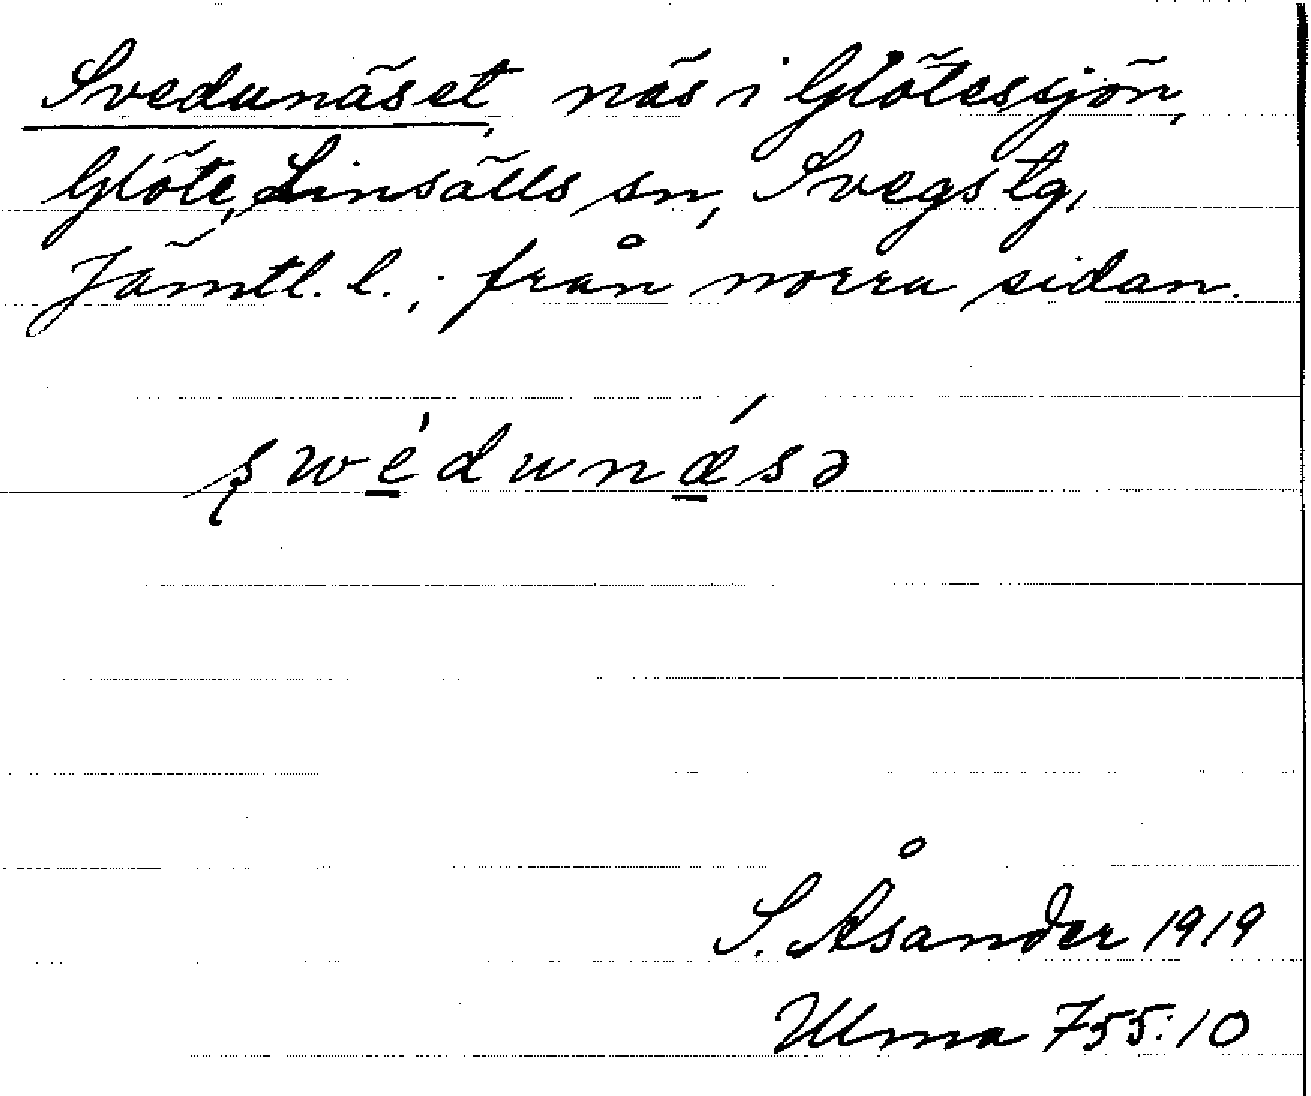 Svedunäset, näs i Glötessjön,
Glöte, Linsälls sn, Svegs tg,
Jämtl. l.; från norra sidan.
swédunǽsə
S. Åsander 1919
Ulma 755:10